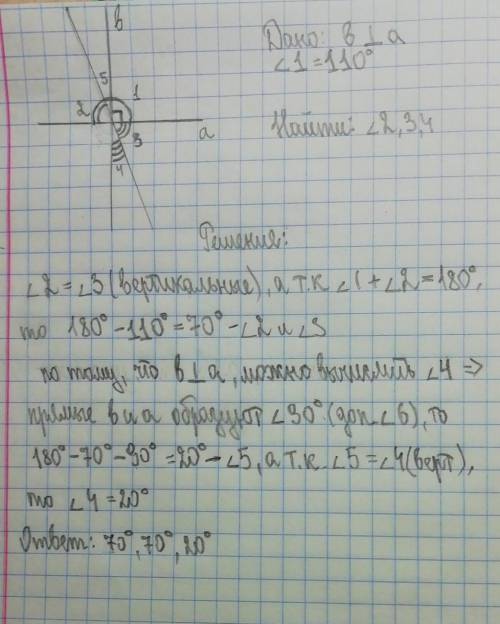 в
Дано: в ⊥ а
∠1 = 110°
5
1
2
а
3
4
Найти: ∠2,3,4
Решение:
∠2 = ∠3 (вертикальные), а т.к ∠1 + ∠2 = 180°,
то 180° - 110° = 70° - ∠2 и ∠3
по тому, что в ⊥ а, можно вычислить ∠4 =>
прямые в и а образуют ∠90° (доп. ∠6), то
180° - 70° - 90° = 20° - ∠5, а т.к. ∠5 = ∠4 (верт),
то ∠4 = 20°
Ответ: 70°, 70°, 20°